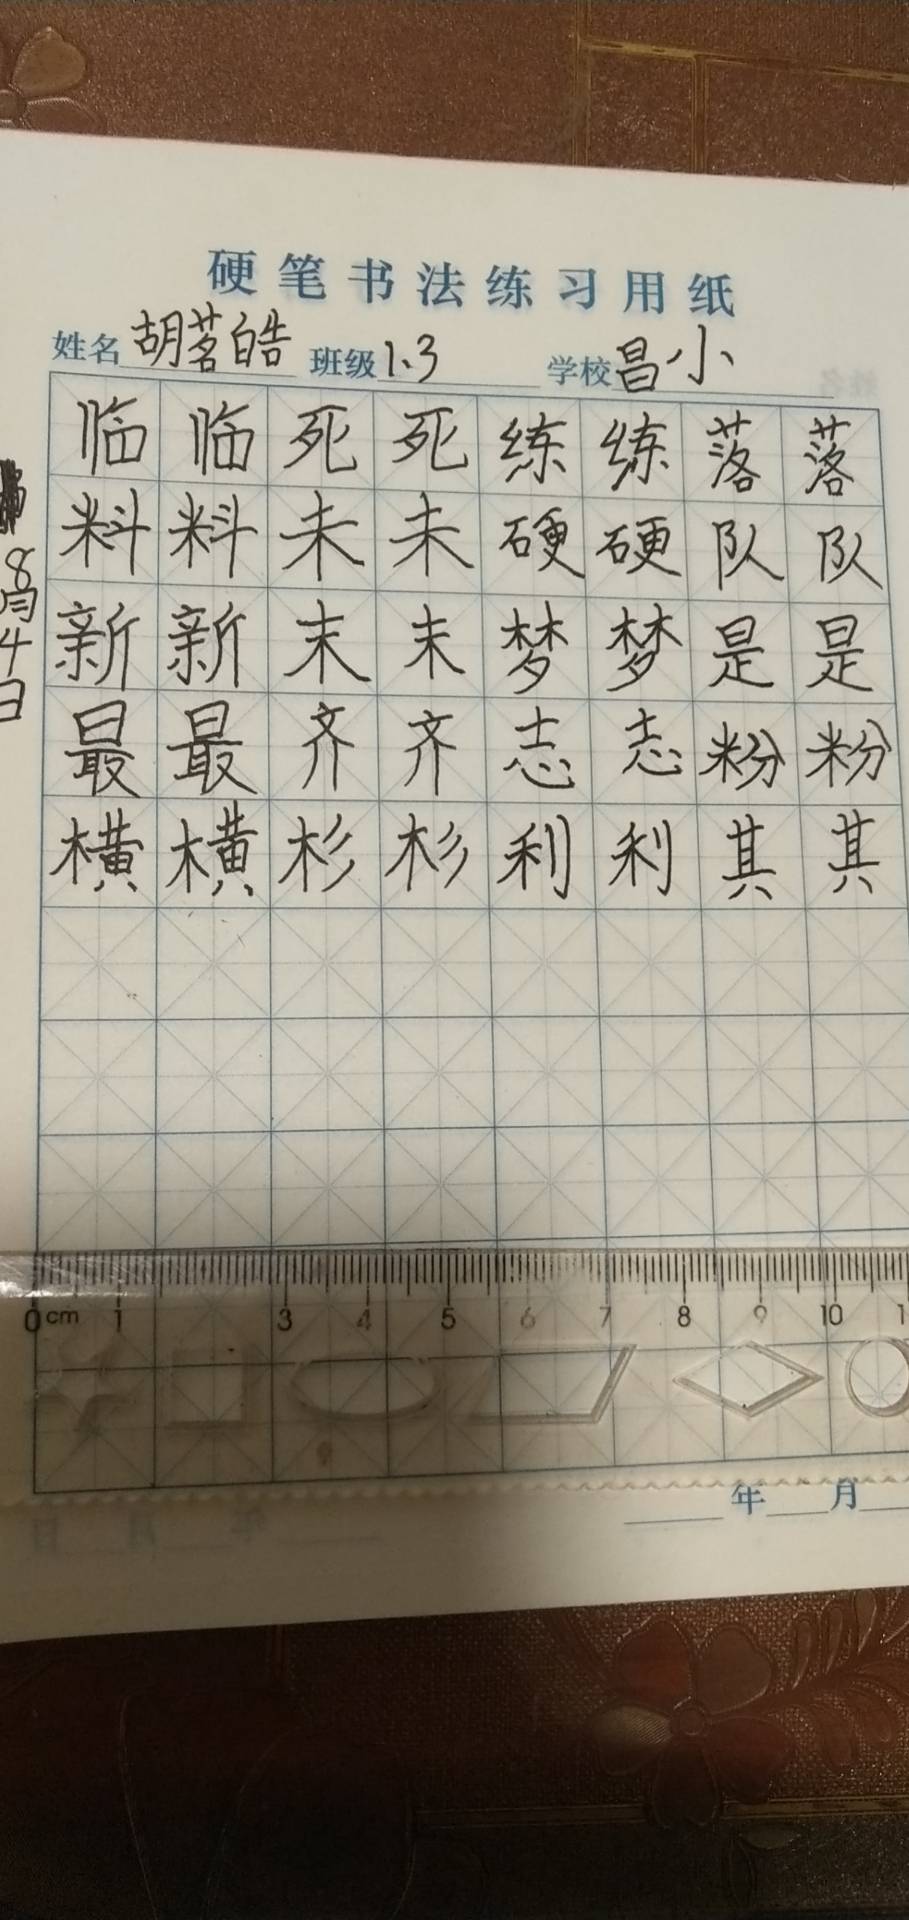 硬笔书法练习用纸
姓名 胡茗皓 班级 1.3 学校 昌小
临 临 死 死 练 练 落 落
料 料 未 未 硬 硬 队 队
新 新 末 末 梦 梦 是 是
最 最 齐 齐 志 志 粉 粉
横 横 杉 杉 利 利 其 其
8月4日
0cm 1 3 4 5 6 7 8 9 10
年 月